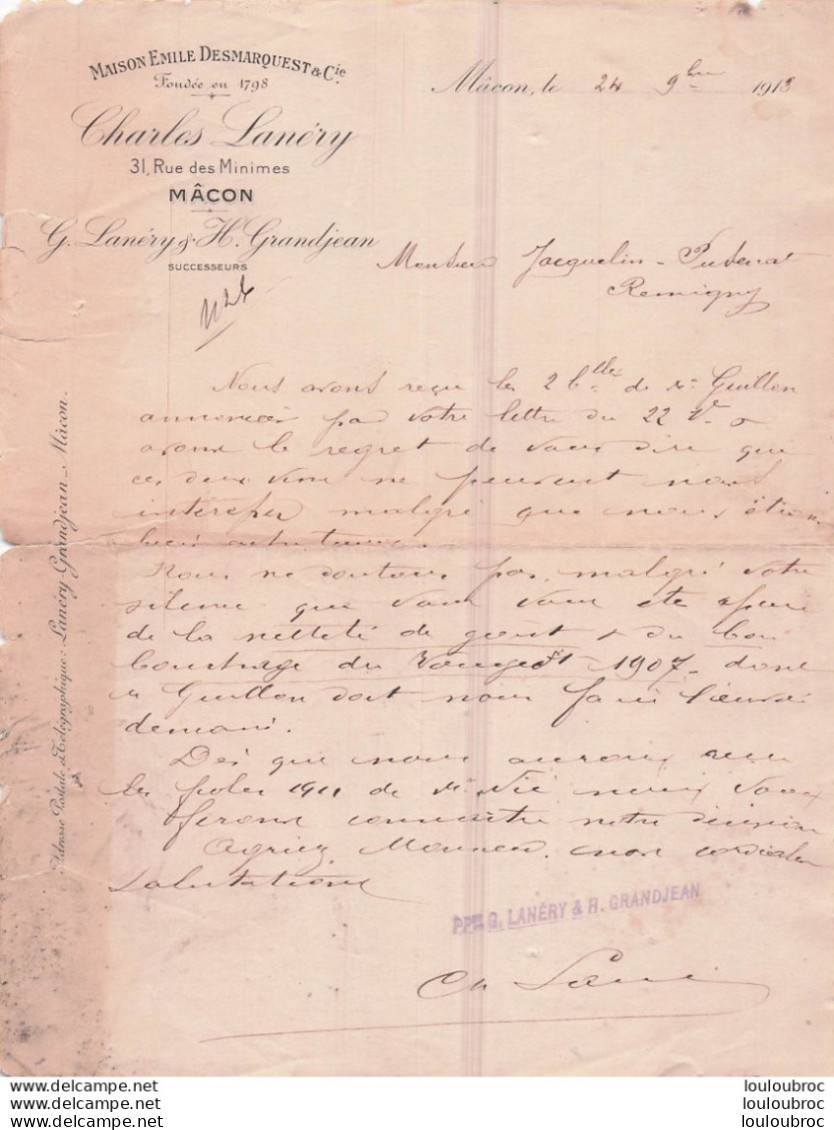 MAISON EMILE DESMARQUEST & Cie
Fondée en 1798
Charles Lanéry
31, Rue des Minimes
MÂCON
G. Lanéry & H. Grandjean
SUCCESSEURS
Mâcon, le 24 9bre 1913
Monsieur Jacquelin-
Remigny
Nous avons reçu les 2 blles de Mr Guillon
par votre lettre du 22 &
avons le regret de vous dire que
ces deux vins ne peuvent nous
intéresser malgré que nous
bien
Nous ne doutons pas malgré votre
silence que vous vous
de la netteté de goût & du bon
bouchage du Vougeot 1907 dont
Mr Guillon doit nous faire
Dès que nous aurons reçu
les 1911 de Mr nous vous
ferons connaître notre décision
Agréez Monsieur nos cordiales
salutations
PPon G. LANÉRY & H. GRANDJEAN
Ch Lanéry
Adresse Postale & Télégraphique: Lanéry-Grandjean-Mâcon.
louloubroc
louloubroc
louloubroc
www.delcampe.net
www.delcampe.net
www.delcampe.net